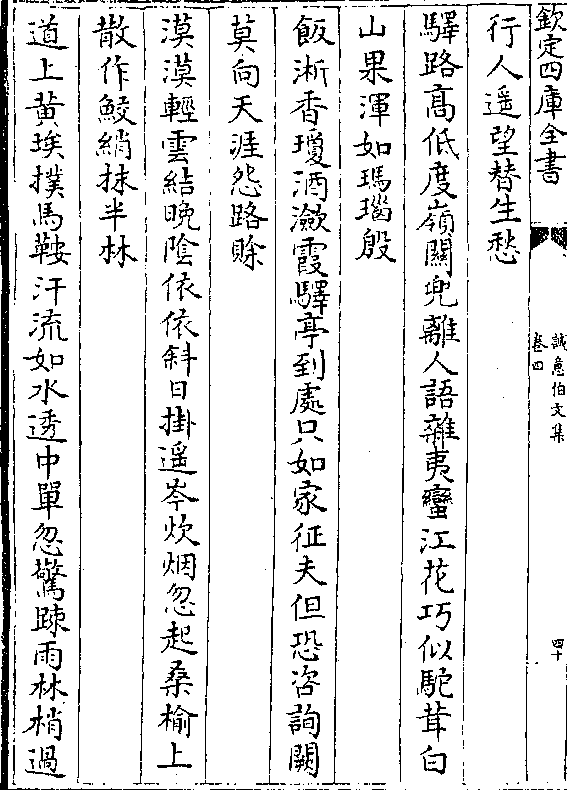 欽定四庫全書
誠意伯文集
卷四
四十
行人遥望替生愁
驛路髙低度嶺闗兜離人語雜夷蠻江花巧似駝茸白
山果渾如瑪瑙殷
飯淅香瓊酒瀲霞驛亭到處只如家征夫但恐咨詢闕
莫向天涯怨路賒
漠漠輕雲結晚陰依依斜日掛遥岑炊烟忽起桑榆上
散作鮫綃抹半林
道上黄埃撲馬鞍汗流如水透中單忽驚踈雨林梢過